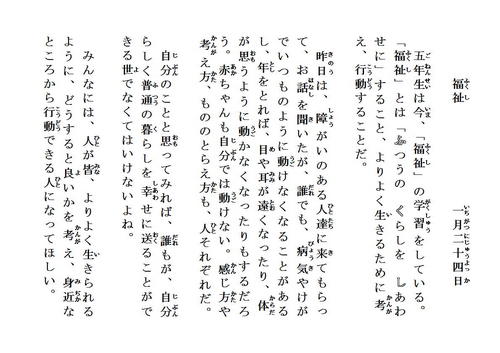 福祉　　一月二十四日
五年生は今、「福祉」の学習をしている。
『福祉』とは『ふつうの くらしを しあわ
せに』すること、よりよく生きるために考
え、行動することだ。
昨日は、障がいのある人達に来てもらっ
て、お話を聞いたが、誰でも、病気やけが
でいつものように動けなくなることがある
し、年をとれば、目や耳が遠くなったり、体
が思うように動かなくなったりもするだろ
う。赤ちゃんも自分では動けない。感じ方や
考え方、もののとらえ方も、人それぞれだ。
自分のことと思ってみれば、誰もが、自分
らしく普通の暮らしを幸せに送ることがで
きる世でなくてはいけないよね。
みんなには、人が皆、よりよく生きられる
ように、どうすると良いかを考え、身近な
ところから行動できる人になってほしい。